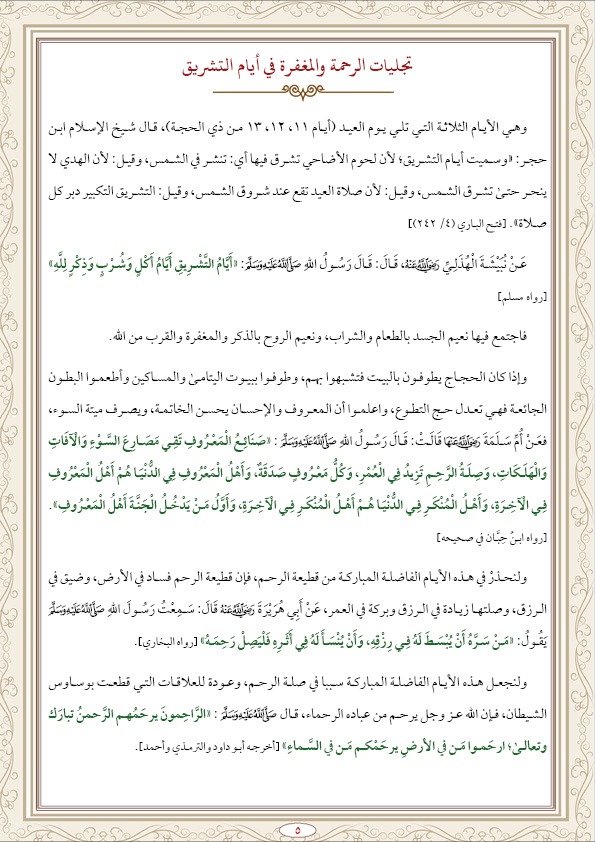 تجليات الرحمة والمغفرة في أيام التشريق
وهـي الأيـام الثلاثـة التـي تلـي يـوم العيـد (أيـام ١١، ١٢، ١٣ مـن ذي الحجـة)، قـال شـيخ الإسـلام ابـن
حجـر: «وسـميت أيـام التشـريق؛ لأن لحوم الأضاحي تشرق فيها أي: تنشر في الشمس، وقيل: لأن الهدي لا
ينحـر حتىٰ تشـرق الشـمس، وقيـل: لأن صلاة العيد تقع عند شـروق الشـمس، وقيل: التشـريق التكبير دبر كل
صـلاة». [فتـح البـاري (٤/ ٢٤٢)]
عَـنْ نُبَيْشَـةَ الْهُذَلِـيِّ رَضِيَ اللَّهُ عَنْهُ، قَـالَ: قَـالَ رَسُـولُ اللهِ صَلَّى اللَّهُ عَلَيْهِ وَسَلَّمَ: «أَيَّامُ التَّشْـرِيقِ أَيَّامُ أَكْلٍ وَشُـرْبٍ وَذِكْـرٍ لِلَّهِ»
[رواه مسلم]
فاجتمع فيها نعيم الجسد بالطعام والشراب، ونعيم الروح بالذكر والمغفرة والقرب من الله.
وإذا كان الحجـاج يطوفـون بالبيـت فتشـبهوا بهـم، وطوفـوا ببيـوت اليتامىٰ والمسـاكين وأطعمـوا البطـون
الجائعـة فهـي تعـدل حـج التطـوع، واعلمـوا أن المعـروف والإحسـان يحسـن الخاتمـة، ويصـرف ميتة السـوء،
فعَـنْ أُمِّ سَـلَمَةَ رَضِيَ اللَّهُ عَنْهَا قَالَتْ: قَـالَ رَسُـولُ اللهِ صَلَّى اللَّهُ عَلَيْهِ وَسَلَّمَ: «صَنَائِعُ الْمَعْرُوفِ تَقِي مَصَـارِعَ السُّـوْءِ وَالْآفَاتِ
وَالْهَلَـكَاتِ، وَصِلَـةُ الرَّحِـمِ تَزِيدُ فِي الْعُمْرِ، وَكُلُّ مَعْـرُوفٍ صَدَقَةٌ، وَأَهْلُ الْمَعْرُوفِ فِي الدُّنْيَا هُمْ أَهْلُ الْمَعْرُوفِ
فِـي الْآخِـرَةِ، وَأَهْـلُ الْمُنْكَـرِ فِـي الدُّنْيَا هُـمْ أَهْـلُ الْمُنْكَرِ فِـي الْآخِـرَةِ، وَأَوَّلُ مَـنْ يَدْخُـلُ الْجَنَّةَ أَهْـلُ الْمَعْرُوفِ».
[رواه ابـنُ حِبَّـان في صحيحه]
ولنحـذرْ في هـذه الأيـام الفاضلـة المباركـة من قطيعة الرحـم، فإن قطيعة الرحم فسـاد في الأرض، وضيق في
الـرزق، وصلتهـا زيـادة في الـرزق وبركة في العمر، عَـنْ أَبِي هُرَيْرَةَ رَضِيَ اللَّهُ عَنْهُ قَالَ: سَـمِعْتُ رَسُـولَ اللهِ صَلَّى اللَّهُ عَلَيْهِ وَسَلَّمَ
يَقُـولُ: «مَـنْ سَـرَّهُ أَنْ يُبْسَـطَ لَـهُ فِـي رِزْقِـهِ، وَأَنْ يُنْسَـأَ لَهُ فِي أَثَـرِهِ فَلْيَصِلْ رَحِمَـهُ» [رواه البخاري].
ولنجعـل هـذه الأيـام الفاضلـة المباركـة سـببا في صلـة الرحـم، وعـودة للعلاقـات التـي قطعـت بوسـاوس
الشـيطان، فـإن الله عـز وجـل يرحـم مـن عباده الرحماء، قـال صَلَّى اللَّهُ عَلَيْهِ وَسَلَّمَ: «الرَّاحِمونَ يرحَمُهـم الرَّحمنُ تبارَك
وتعالـىٰ؛ ارحَمـوا مَـن في الأرضِ يرحَمْكـم مَـن في السَّـماءِ» [أخرجـه أبـو داود والترمـذي وأحمـد].
٥